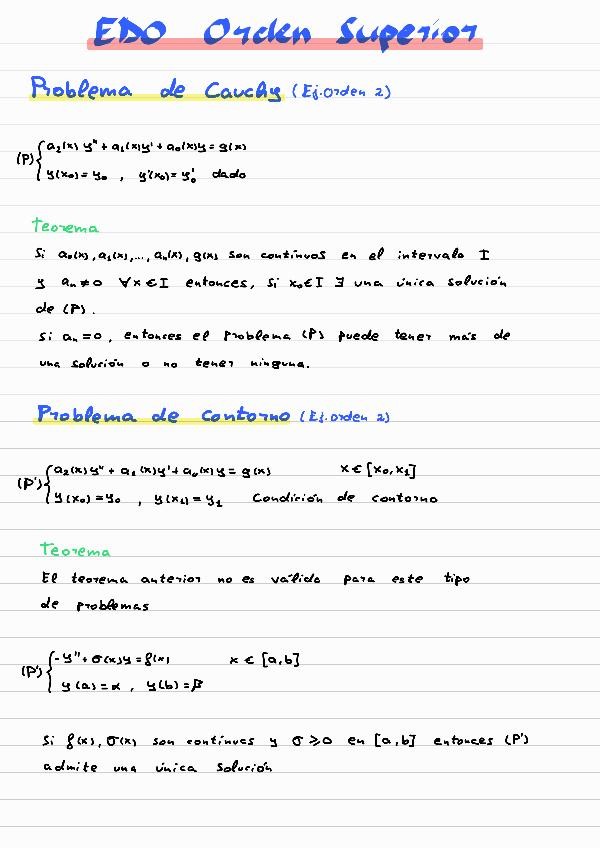 EDO Orden Superior
Problema de Cauchy (Ej. orden 2)
(P) { a₂(x) y'' + a₁(x) y' + a₀(x) y = g(x)
y(x₀) = y₀ , y'(x₀) = y₀' dado
Teorema
Si a₀(x), a₁(x), ..., aₙ(x), g(x) son continuos en el intervalo I
y aₙ ≠ 0 ∀x ∈ I entonces, si x₀ ∈ I ∃ una única solución
de (P).
Si aₙ = 0, entonces el problema (P) puede tener más de
una solución o no tener ninguna.
Problema de contorno (Ej. orden 2)
(P') { a₂(x) y'' + a₁(x) y' + a₀(x) y = g(x) x ∈ [x₀, x₁]
y(x₀) = y₀ , y(x₁) = y₁ Condición de contorno
Teorema
El teorema anterior no es válido para este tipo
de problemas
(P') { -y'' + σ(x) y = f(x) x ∈ [a, b]
y(a) = α , y(b) = β
Si f(x), σ(x) son continuos y σ ⩾ 0 en [a, b] entonces (P')
admite una única solución